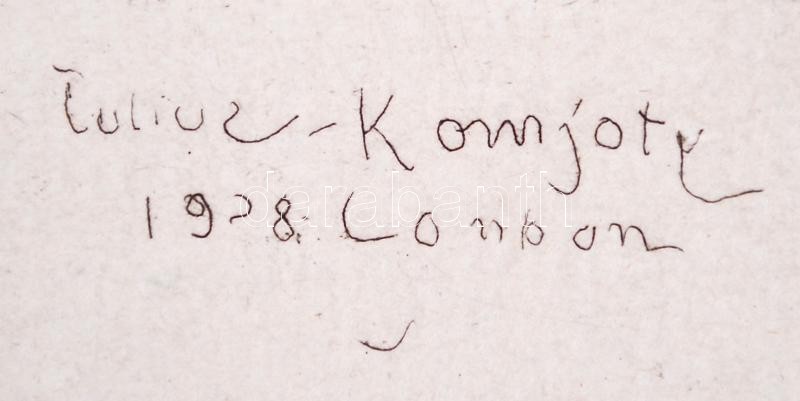 Julius - Komjoty
1928. London
darabanth